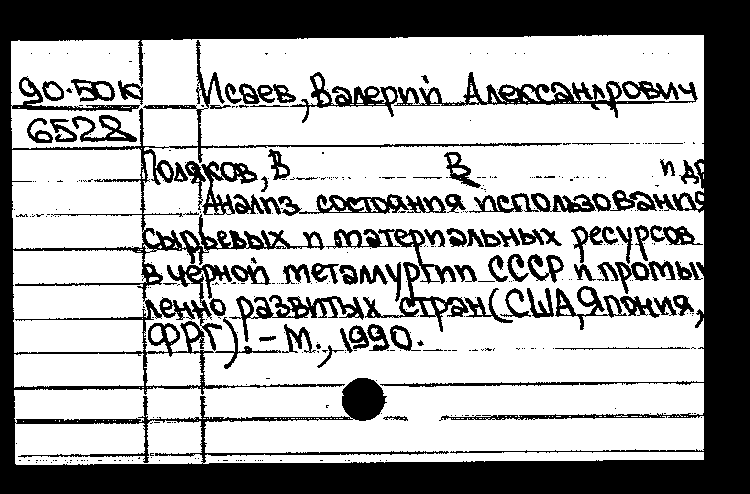 90-50к Исаев, Валерий Александрович
6522
Поляков, В В и др
Анализ состояния использования
сырьевых и материальных ресурсов
в черной металлургии СССР и промыш
ленно развитых стран (США, Япония,
ФРГ). - М., 1990.